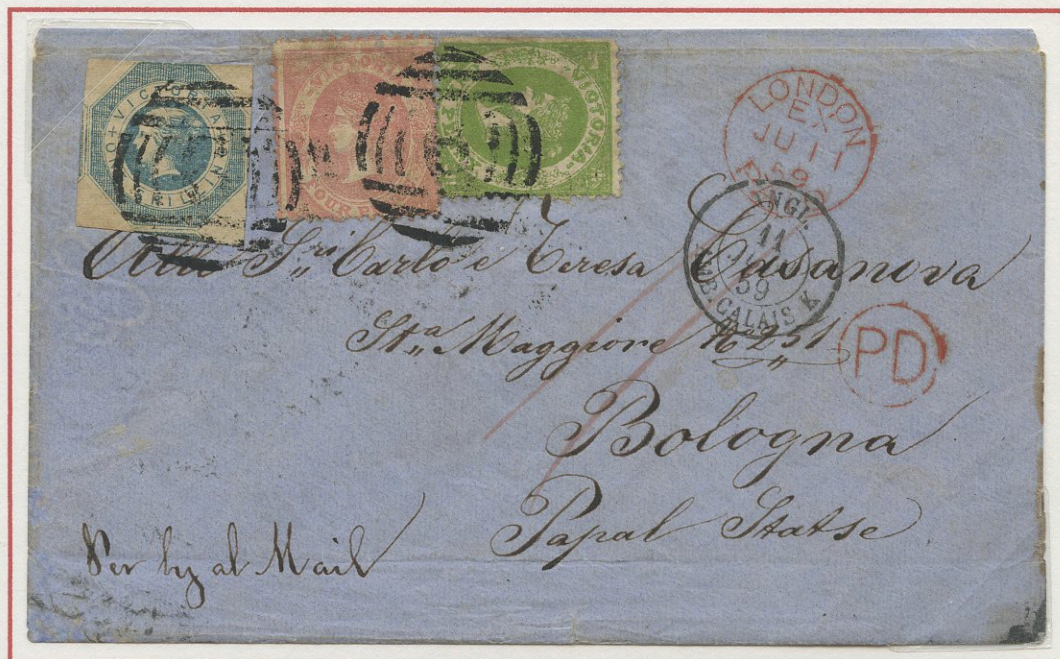 VICTORIA
ONE SHILLING
VICTORIA
VICTORIA
LONDON
EX
JU 11
59
PAID
ANGL.
11
59
AMB. CALAIS K
PD
Alli Sri Carlo e Teresa Casanova
Sta Maggiore No 251
Bologna
Papal Statse
Per by al Mail